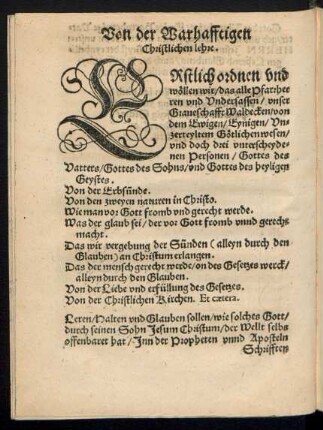 Von der Warhafftigen
Christlichen lehre.
ERstlich ordnen vnd
wöllen wir / das alle Pfarrher
ren vnd Vndersassen / vnser
Graueschafft Waldecken / von
dem Ewigen / Eynigen / Vn-
zerteyltem Götlichen wesen /
vnd doch drei vnterscheyde-
nen Personen / Gottes des
Vatters / Gottes des Sohns / vnd Gottes des heyligen
Geystes.
Von der Erbsünde.
Von den zweyen naturen in Christo.
Wie man vor Gott fromb vnd gerecht werde.
Was der glaub sei / der vor Gott fromb vnnd gerecht
macht.
Das wir vergebung der Sünden (alleyn durch den
Glauben) an Christum erlangen.
Das der mensch gerecht werde / on des Gesetzes werck /
alleyn durch den Glauben.
Von der Liebe vnd erfüllung des Gesetzes.
Von der Christlichen Kirchen. Et cætera.
Leren / Halten vnd Glauben sollen / wie solches Gott /
durch seinen Sohn Jesum Christum / der Wellt selbs
offenbaret hat / Inn der Propheten vnnd Aposteln
Schrifften